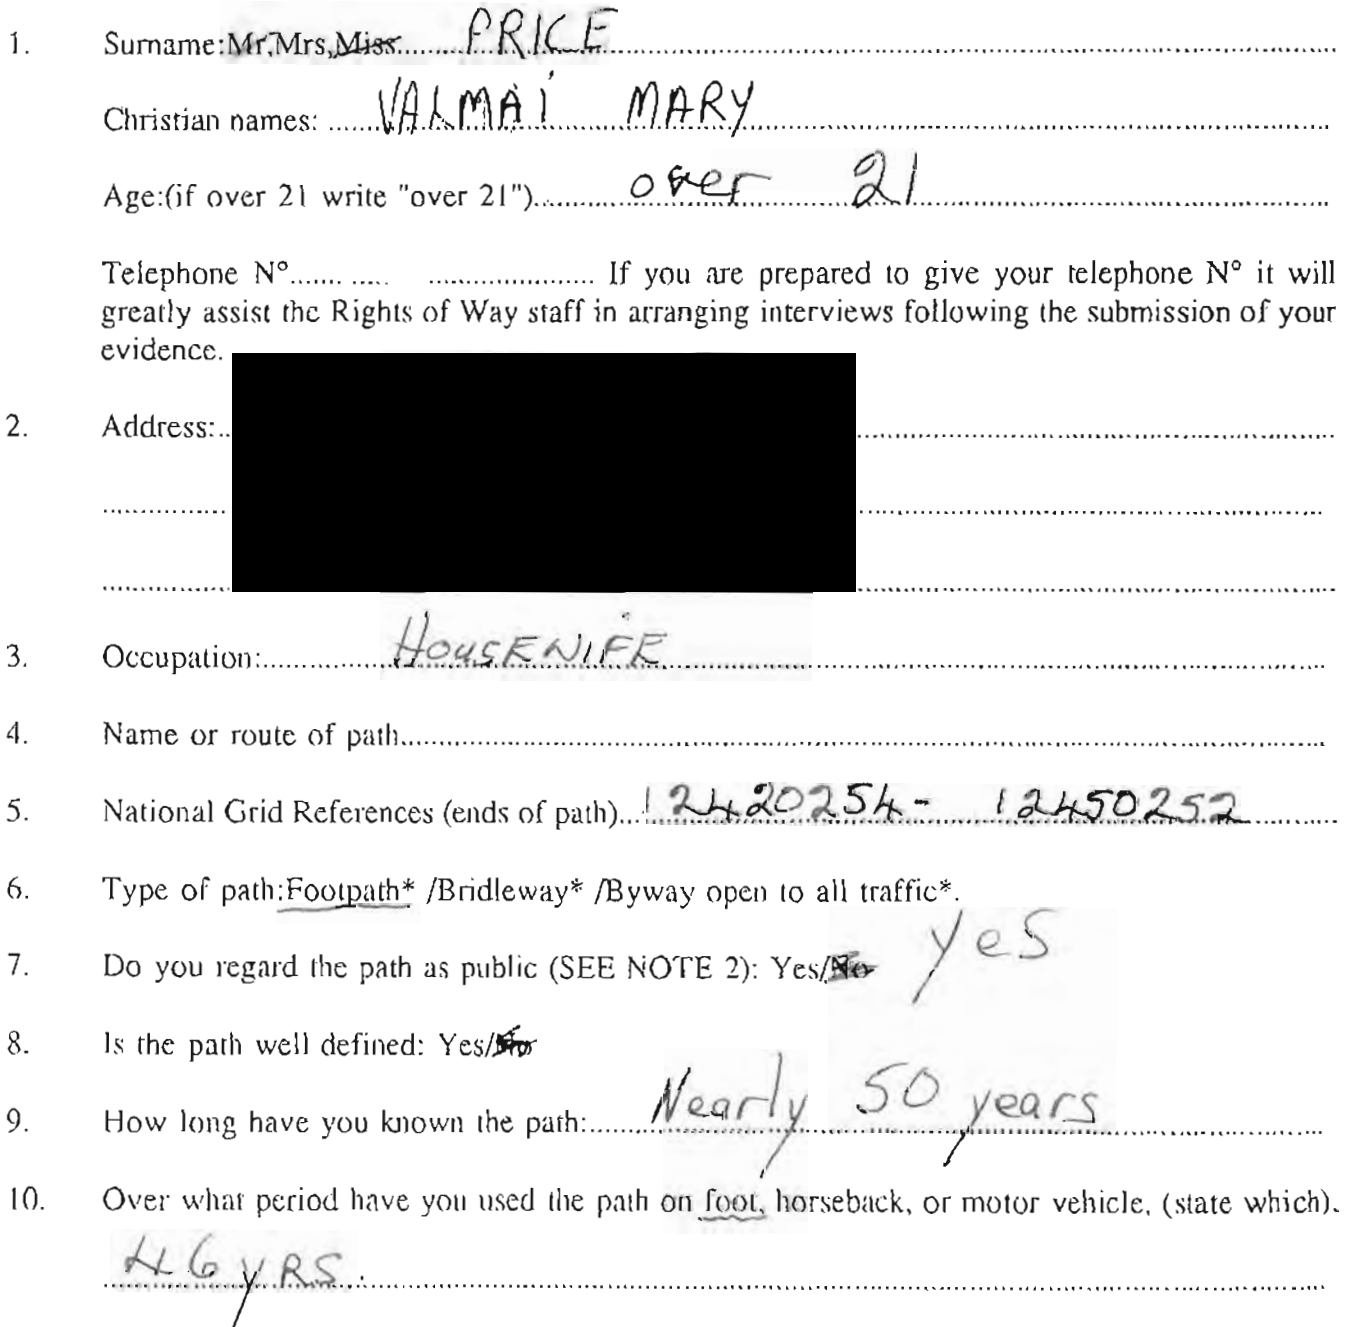 1. Surname:Mr,Mrs,Miss........PRICE
Christian names: ......VALMAI MARY
Age:(if over 21 write "over 21")..........over 21
Telephone N°....... ..... ..................... If you are prepared to give your telephone N° it will
greatly assist the Rights of Way staff in arranging interviews following the submission of your
evidence.
2. Address:..
3. Occupation:..............HOUSEWIFE
4. Name or route of path..........
5. National Grid References (ends of path)...12420254- 12450252
6. Type of path:Footpath* /Bridleway* /Byway open to all traffic*.
7. Do you regard the path as public (SEE NOTE 2): Yes/No yes
8. Is the path well defined: Yes/No
9. How long have you known the path:.......Nearly 50 years
10. Over what period have you used the path on foot, horseback, or motor vehicle, (state which).
46 yRS.